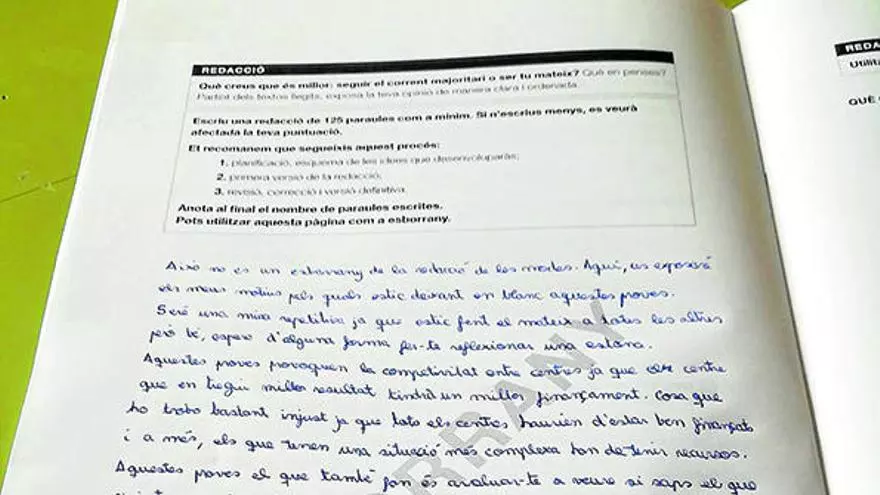 REDACCIÓ
Què creus que és millor: seguir el corrent majoritari o ser tu mateix? Què en penses?
Partint dels textos llegits, exposa la teva opinió de manera clara i ordenada.
Escriu una redacció de 125 paraules com a mínim. Si n'escrius menys, es veurà
afectada la teva puntuació.
Et recomanem que segueixis aquest procés:
1. planificació, esquema de les idees que desenvoluparàs;
2. primera versió de la redacció;
3. revisió, correcció i versió definitiva.
Anota al final el nombre de paraules escrites.
Pots utilitzar aquesta pàgina com a esborrany.
Això no es un esborrany de la redacció de les modes. Aquí, us exposaré
els meus motius pels quals estic deixant en blanc aquestes proves.
Seré una mica repetitiva ja que estic fent el mateix a totes les altres
però bé, espero d'alguna forma fer-te reflexionar una estona.
Aquestes proves provoquen la competivitat entre centres ja que centre
que en tregui millor resultat tindrà un millor finançament. Cosa que
ho trobo bastant injust ja que tots els centres haurien d'estar ben finançats
i a més, els que tenen una situació més complexa han de tenir recursos.
Aquestes proves el que també fan és avaluar-te a veure si saps el que
ESBORRANY
REDA
Utilit
QUÈ